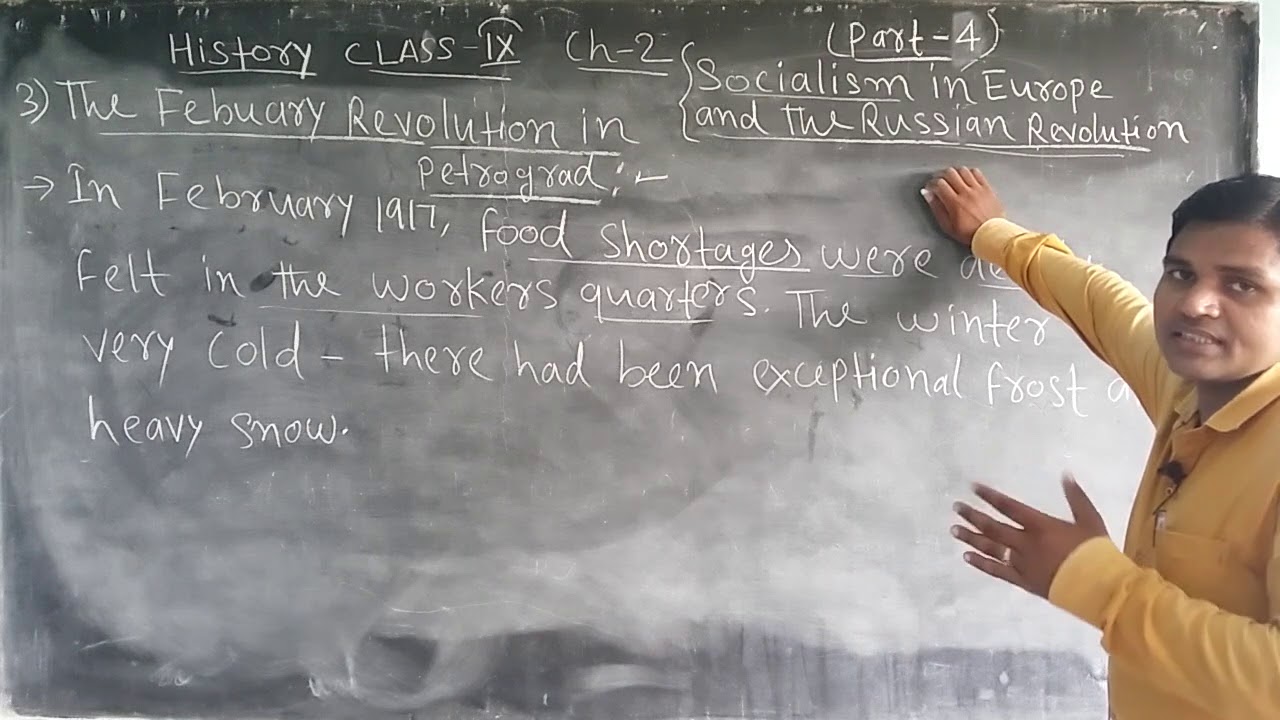 History CLASS-IX Ch-2 (Part-4)
Socialism in Europe
and the Russian Revolution
3) The Febuary Revolution in
Petrograd:-
→ In February 1917, food shortages were
felt in the workers quarters. The winter
very cold - there had been exceptional frost
heavy snow.